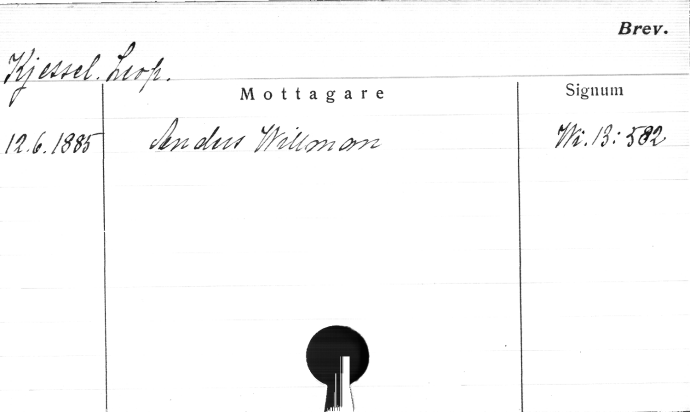 Brev.
Kjessel. Leop.
Mottagare Signum
12.6.1885 Anders Willman Wi.13:582